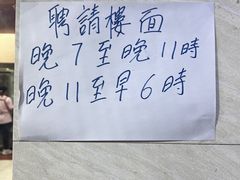 聘請樓面
晚7至晚11時
晚11至早6時